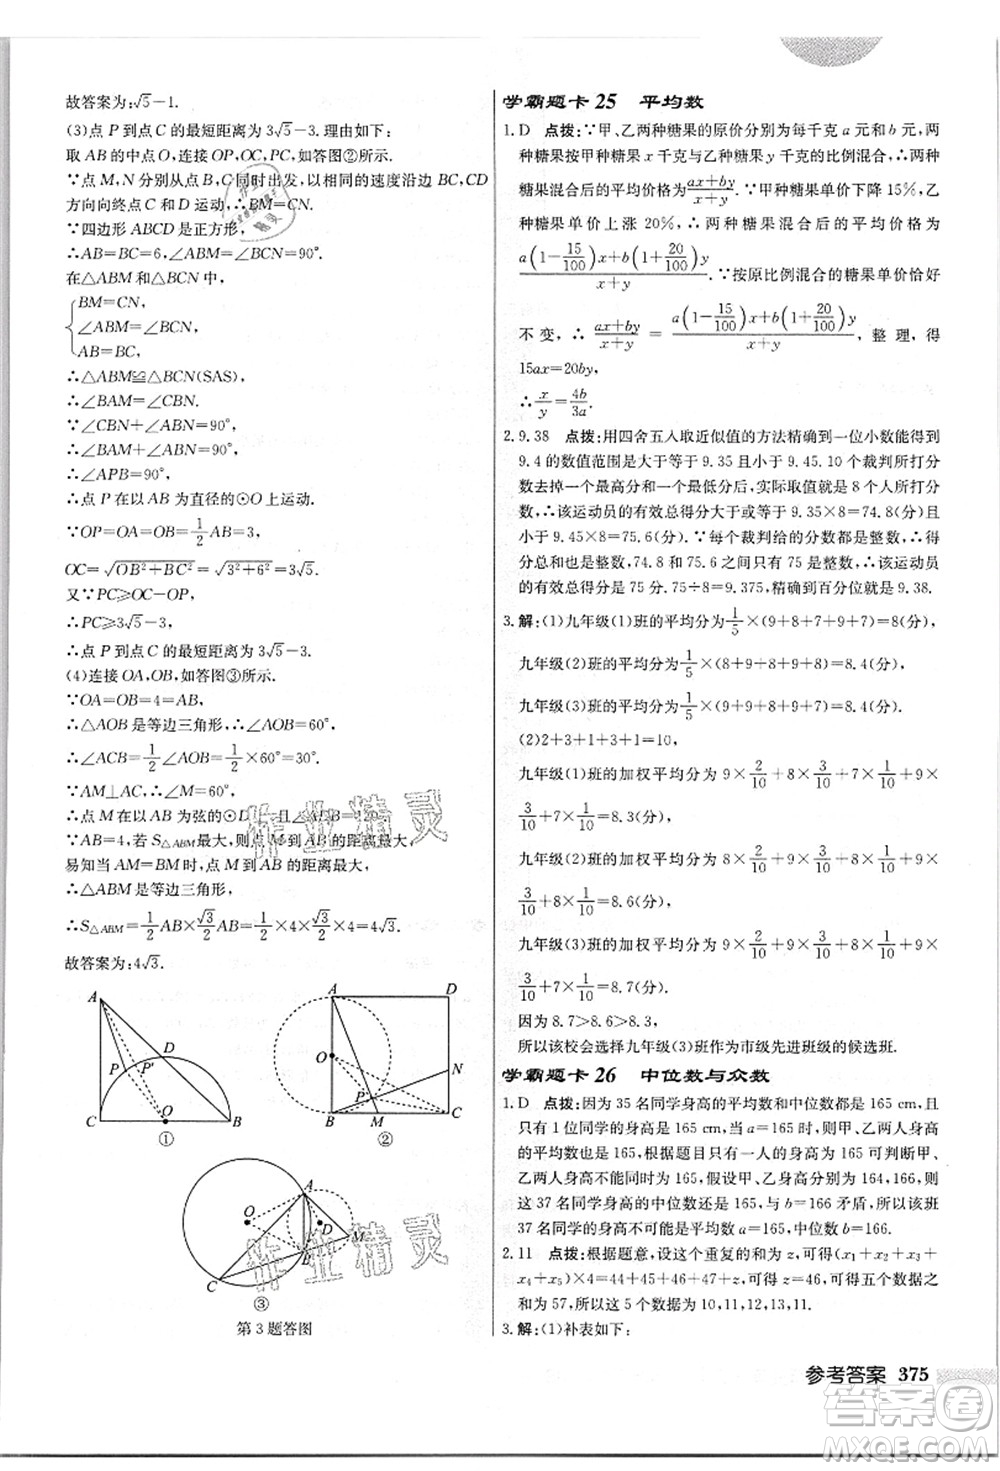 故答案为:√5-1.
(3)点 P 到点 C 的最短距离为 3√5-3. 理由如下:
取 AB 的中点 O,连接 OP,OC,如答图②所示.
∵点 M,N 分别从点 B,C 同时出发,以相同的速度沿 BC,CD
方向向终点 C 和 D 运动,∴BM=CN.
∵四边形 ABCD 是正方形,
∴AB=BC=6,∠ABM=∠BCN=90°.
在△ABM 和△BCN 中,
BM=CN,
∠ABM=∠BCN,
AB=BC,
∴△ABM≌△BCN(SAS).
∴∠BAM=∠CBN.
∵∠CBN+∠ABN=90°,
∴∠BAM+∠ABN=90°.
∴∠APB=90°.
∴点 P 在以 AB 为直径的⊙O 上运动.
∵OP=OA=OB=1/2AB=3,
OC=√(OB²+BC²)=√(3²+6²)=3√5.
又∵PC≥OC-OP,
∴PC≥3√5-3.
∴点 P 到点 C 的最短距离为 3√5-3.
(4)连接 OA,OB,如答图③所示.
∵OA=OB=4=AB,
∴△AOB 是等边三角形,∴∠AOB=60°.
∴∠ACB=1/2∠AOB=1/2×60°=30°.
∵AM⊥AC,∴∠M=60°.
∴点 M 在以 AB 为弦的⊙D 上,
∵AB=4,若 S△ABM最大,则点 M 到 AB 的距离最大.
易知当 AM=BM 时,点 M 到 AB 的距离最大,
∴△ABM 是等边三角形,
∴S△ABM=1/2AB×√3/2AB=1/2×4×√3/2×4=4√3.
故答案为:4√3.
A D P P′ C O B
①
A D O N P B M C
②
O A D M B C
③
第 3 题答图
学霸题卡 25 平均数
1. D 点拨:∵甲、乙两种糖果的原价分别为每千克 a 元和 b 元,两
种糖果按甲种糖果 x 千克与乙种糖果 y 千克的比例混合,∴两种
糖果混合后的平均价格为(ax+by)/(x+y).∵甲种糖果单价下降 15%,乙
种糖果单价上涨 20%,∴两种糖果混合后的平均价格为
(a(1-15/100)x+b(1+20/100)y)/(x+y).∵按原比例混合的糖果单价恰好
不变,∴(ax+by)/(x+y)=(a(1-15/100)x+b(1+20/100)y)/(x+y),整理,得
15ax=20by,
∴x/y=4b/3a.
2. 9.38 点拨:用四舍五入取近似值的方法精确到一位小数能得到
9.4 的数值范围是大于等于 9.35 且小于 9.45.10 个裁判所打分
数去掉一个最高和一个最低分后,实际取值就是 8 个人所打的分
数,∴该运动员的有效总得分大于或等于 9.35×8=74.8(分)且
小于 9.45×8=75.6(分).∵每个裁判给的分数都是整数,∴得
分总和也是整数,在 74.8 和 75.6 之间只有 75 是整数,∴该运动员
的有效总得分是 75 分. 75÷8=9.375,∴精确到两位小数就是 9.38.
3. 解:(1)九年级(1)班的平均分为1/5×(9+8+7+9+7)=8(分)
九年级(2)班的平均分为1/5×(8+9+8+9+8)=8.4(分)
九年级(3)班的平均分为1/5×(9+9+8+7+9)=8.4(分)
(2)2+3+1+3+1=10,
九年级(1)班的加权平均分为 9×2/10+8×3/10+7×1/10+9×
3/10+7×1/10=8.3(分),
九年级(2)班的加权平均分为 8×2/10+9×3/10+8×1/10+9×
3/10+8×1/10=8.6(分),
九年级(3)班的加权平均分为 9×2/10+9×3/10+8×1/10+7×
3/10+9×1/10=8.7(分).
因为 8.7>8.6>8.3,
所以该校会选择九年级(3)班作为市级先进班级的候选班.
学霸题卡 26 中位数与众数
1. D 点拨:因为 35 名同学身高的平均数和中位数都是 165 cm,且
只有 1 位同学的身高是 165 cm,当 a=165 时,则甲、乙两人身高
的平均数也是 165,根据题目只有一人的身高是 165,可判断甲、
乙两人身高不能同时为 165,假设甲、乙身高分别为 164,166,则
这 37 名同学身高的中位数还是 165,与 b=166 矛盾,所以该班
37 名同学的身高不可能是平均数 a=165,中位数 b=166.
2. 11 点拨:根据题意,设这个重复的和为 z,可得(x₁+x₂+x₃+
x₄+x₅)×4=44+45+46+47+z,可得 z=46,则这 5 个数之
和 57,所以这 5 个数为 10,11,12,13,11.
3. 解:(1)补表如下:
参考答案 375
作业精灵
作业精灵
答案圈
MXQE.COM